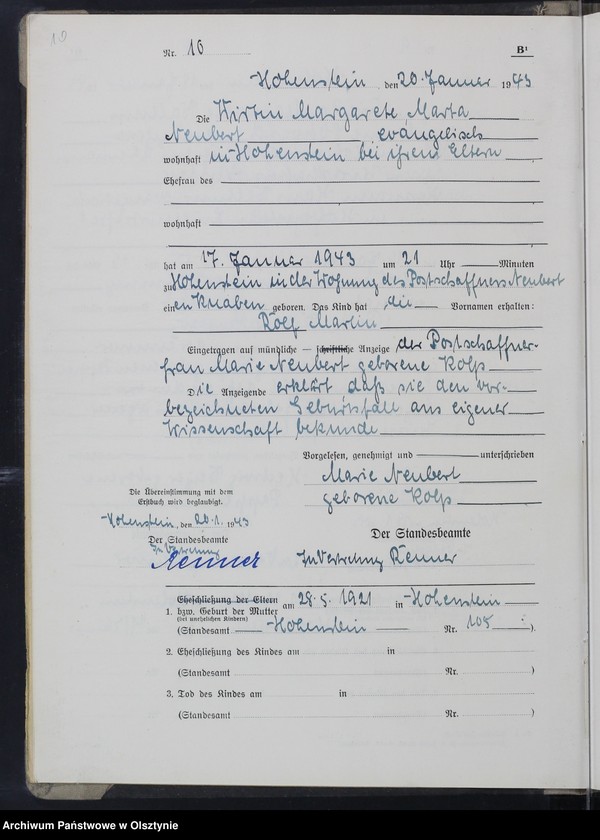 10
Nr. 10
B¹
Hohenstein, den 20. Januar 1943
Die Wirtin Margarete Marta
Neubert evangelisch
wohnhaft in Hohenstein bei ihren Eltern
Ehefrau des
wohnhaft
hat am 17. Januar 1943 um 21 Uhr Minuten
zu Hohenstein in der Wohnung des Postschaffners Neubert
einen Knaben geboren. Das Kind hat die Vornamen erhalten:
Rolf Martin
Eingetragen auf mündliche — schriftliche Anzeige der Postschaffner-
frau Marie Neubert geborene Kolß
Die Anzeigende erklärt daß sie den vor-
bezeichneten Geburtsfall aus eigener
Wissenschaft bekunde
Vorgelesen, genehmigt und unterschrieben
Marie Neubert
geborene Kolß
Die Übereinstimmung mit dem
Erstbuch wird beglaubigt.
Hohenstein, den 20.1. 1943
Der Standesbeamte
In Vertretung
Renner
Der Standesbeamte
In Vertretung Renner
Eheschließung der Eltern
1. bzw. Geburt der Mutter am 28.5.1921 in Hohenstein
(bei unehelichen Kindern)
(Standesamt Hohenstein Nr. 105).
2. Eheschließung des Kindes am in
(Standesamt Nr. )
3. Tod des Kindes am in
(Standesamt Nr. )
Archiwum Państwowe w Olsztynie